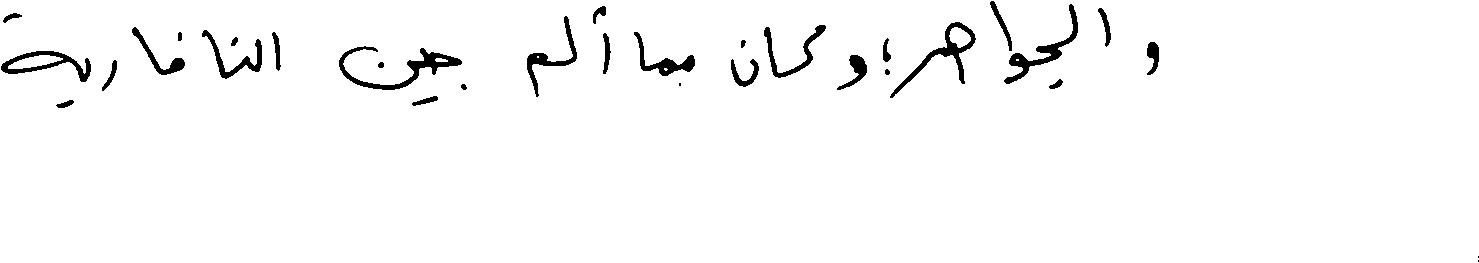 والجواهر؛ وكان مما ألم جين النافارية